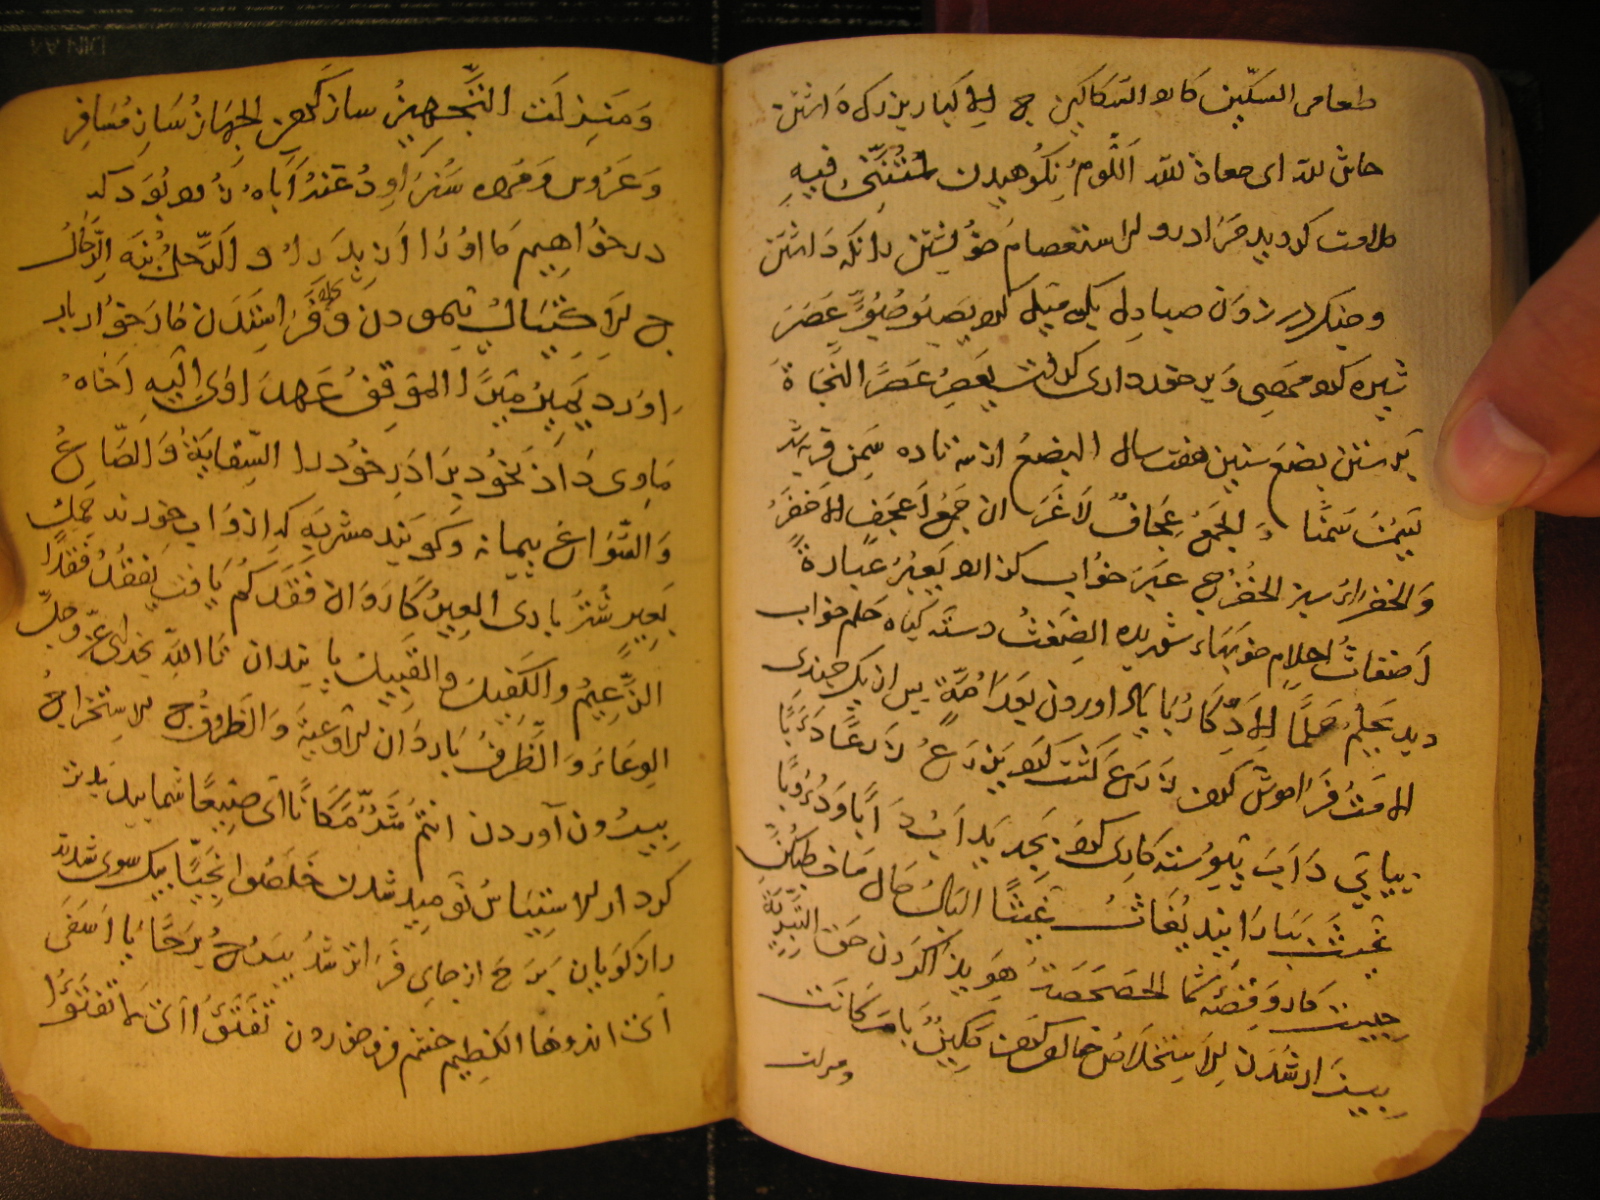 طعامی السکّین کارد السکاکین ج الاکبار بزرک داشتن
حاش للّه ای معاذ للّه اللّوم نکوهیدن لمتنّنی فیه
ملامت کردید مرا درو الاستعصام خویشتن را نکه داشتن
یصبو صبوّ عصر
شیره کرد یعصر عصرا النجاة
رستن بضع سنین هفت سال البضع از سه تا ده سمن فربه شد
یسمن سمنا و الجمع عجاف لاغران جمع اعجف الاخضر
والخضراء سبز الخضر ج عبر خواب کذارد یعبر عبارة
اضغاث احلام خوابهاء شوریده الضغث دسته کیاه حلم خواب
دید یحلم حلما الادّکار با یاد اوردن بعد امّة پس از یک چندی
الامه فراموش کردن زرع کشت کرد یزرع زرعا دأبا
پیاپی دأب پیوسته کاری کرد یدأب دأبا و دؤوبا
یغیث بیاراند یغاث غیثا البال حال ما خطبکنّ
چیست کار و قصّه شما الحصحصة هویذا کردن حق التبرئة
بیزار شدن الاستخلاص خالص کردن مکین با مکانت
ومنزلت
ومنزلت التجهیز ساز کردن الجهاز ساز مسافر
وعروس ومرده سنراود عنه اباه زود بود که
درخواهیم ما او را از پدر او الرّحل بنه الرّحال
ج الاکتیال پیمودن و فرا ستدن مار خوار بار
اورد یمیر میرا الموثق عهد اوی الیه اخاه
ماوی داذ بخود برادر خود را السّقایة والصّاع
والصّواع پیمانه وکویند مشربه که ازو آب خوردند حمل
بعیر شتر باری العیر کاروان فقد کم یافت یفقد فقدا
الزّعیم والکفیل والقبیل پایندان تاالله بخدای عزّ وجلّ
الوعاء والظّرف باردان الاوعیة والظروف ج الاستخراج
بیرون آوردن انتم شرّ مکانا ای صنیعا شما بدترید
کردار الاستیاس نومید شدن خلصوا نجیّا بیک سوی شدند
رازکویان برح از جای فراتر شد یبرح برحا یا اسفی
ای اندوها الکظیم خشم فرو خوردن تفتؤا ای لا تفتؤا